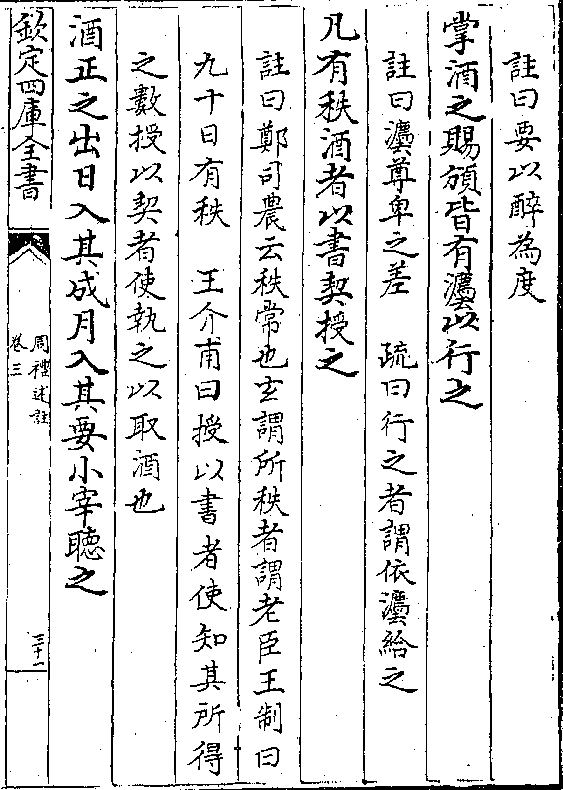 註曰要以醉為度
掌酒之賜頒皆有灋以行之
註曰灋尊卑之差　疏曰行之者謂依灋給之
凡有秩酒者以書契授之
註曰鄭司農云秩常也玄謂所秩者謂老臣王制曰
九十日有秩　王介甫曰授以書者使知其所得
之數授以契者使執之以取酒也
酒正之出日入其成月入其要小宰聽之
欽定四庫全書
周禮述註
卷三
三十一